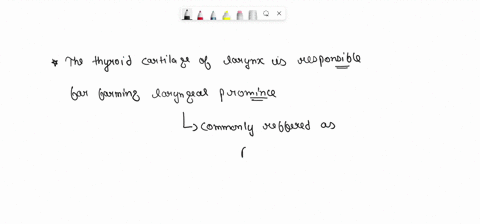 * The thyroid cartilage of larynx is responsible
for farming laryngeal promince
↳ commonly reffered as
(